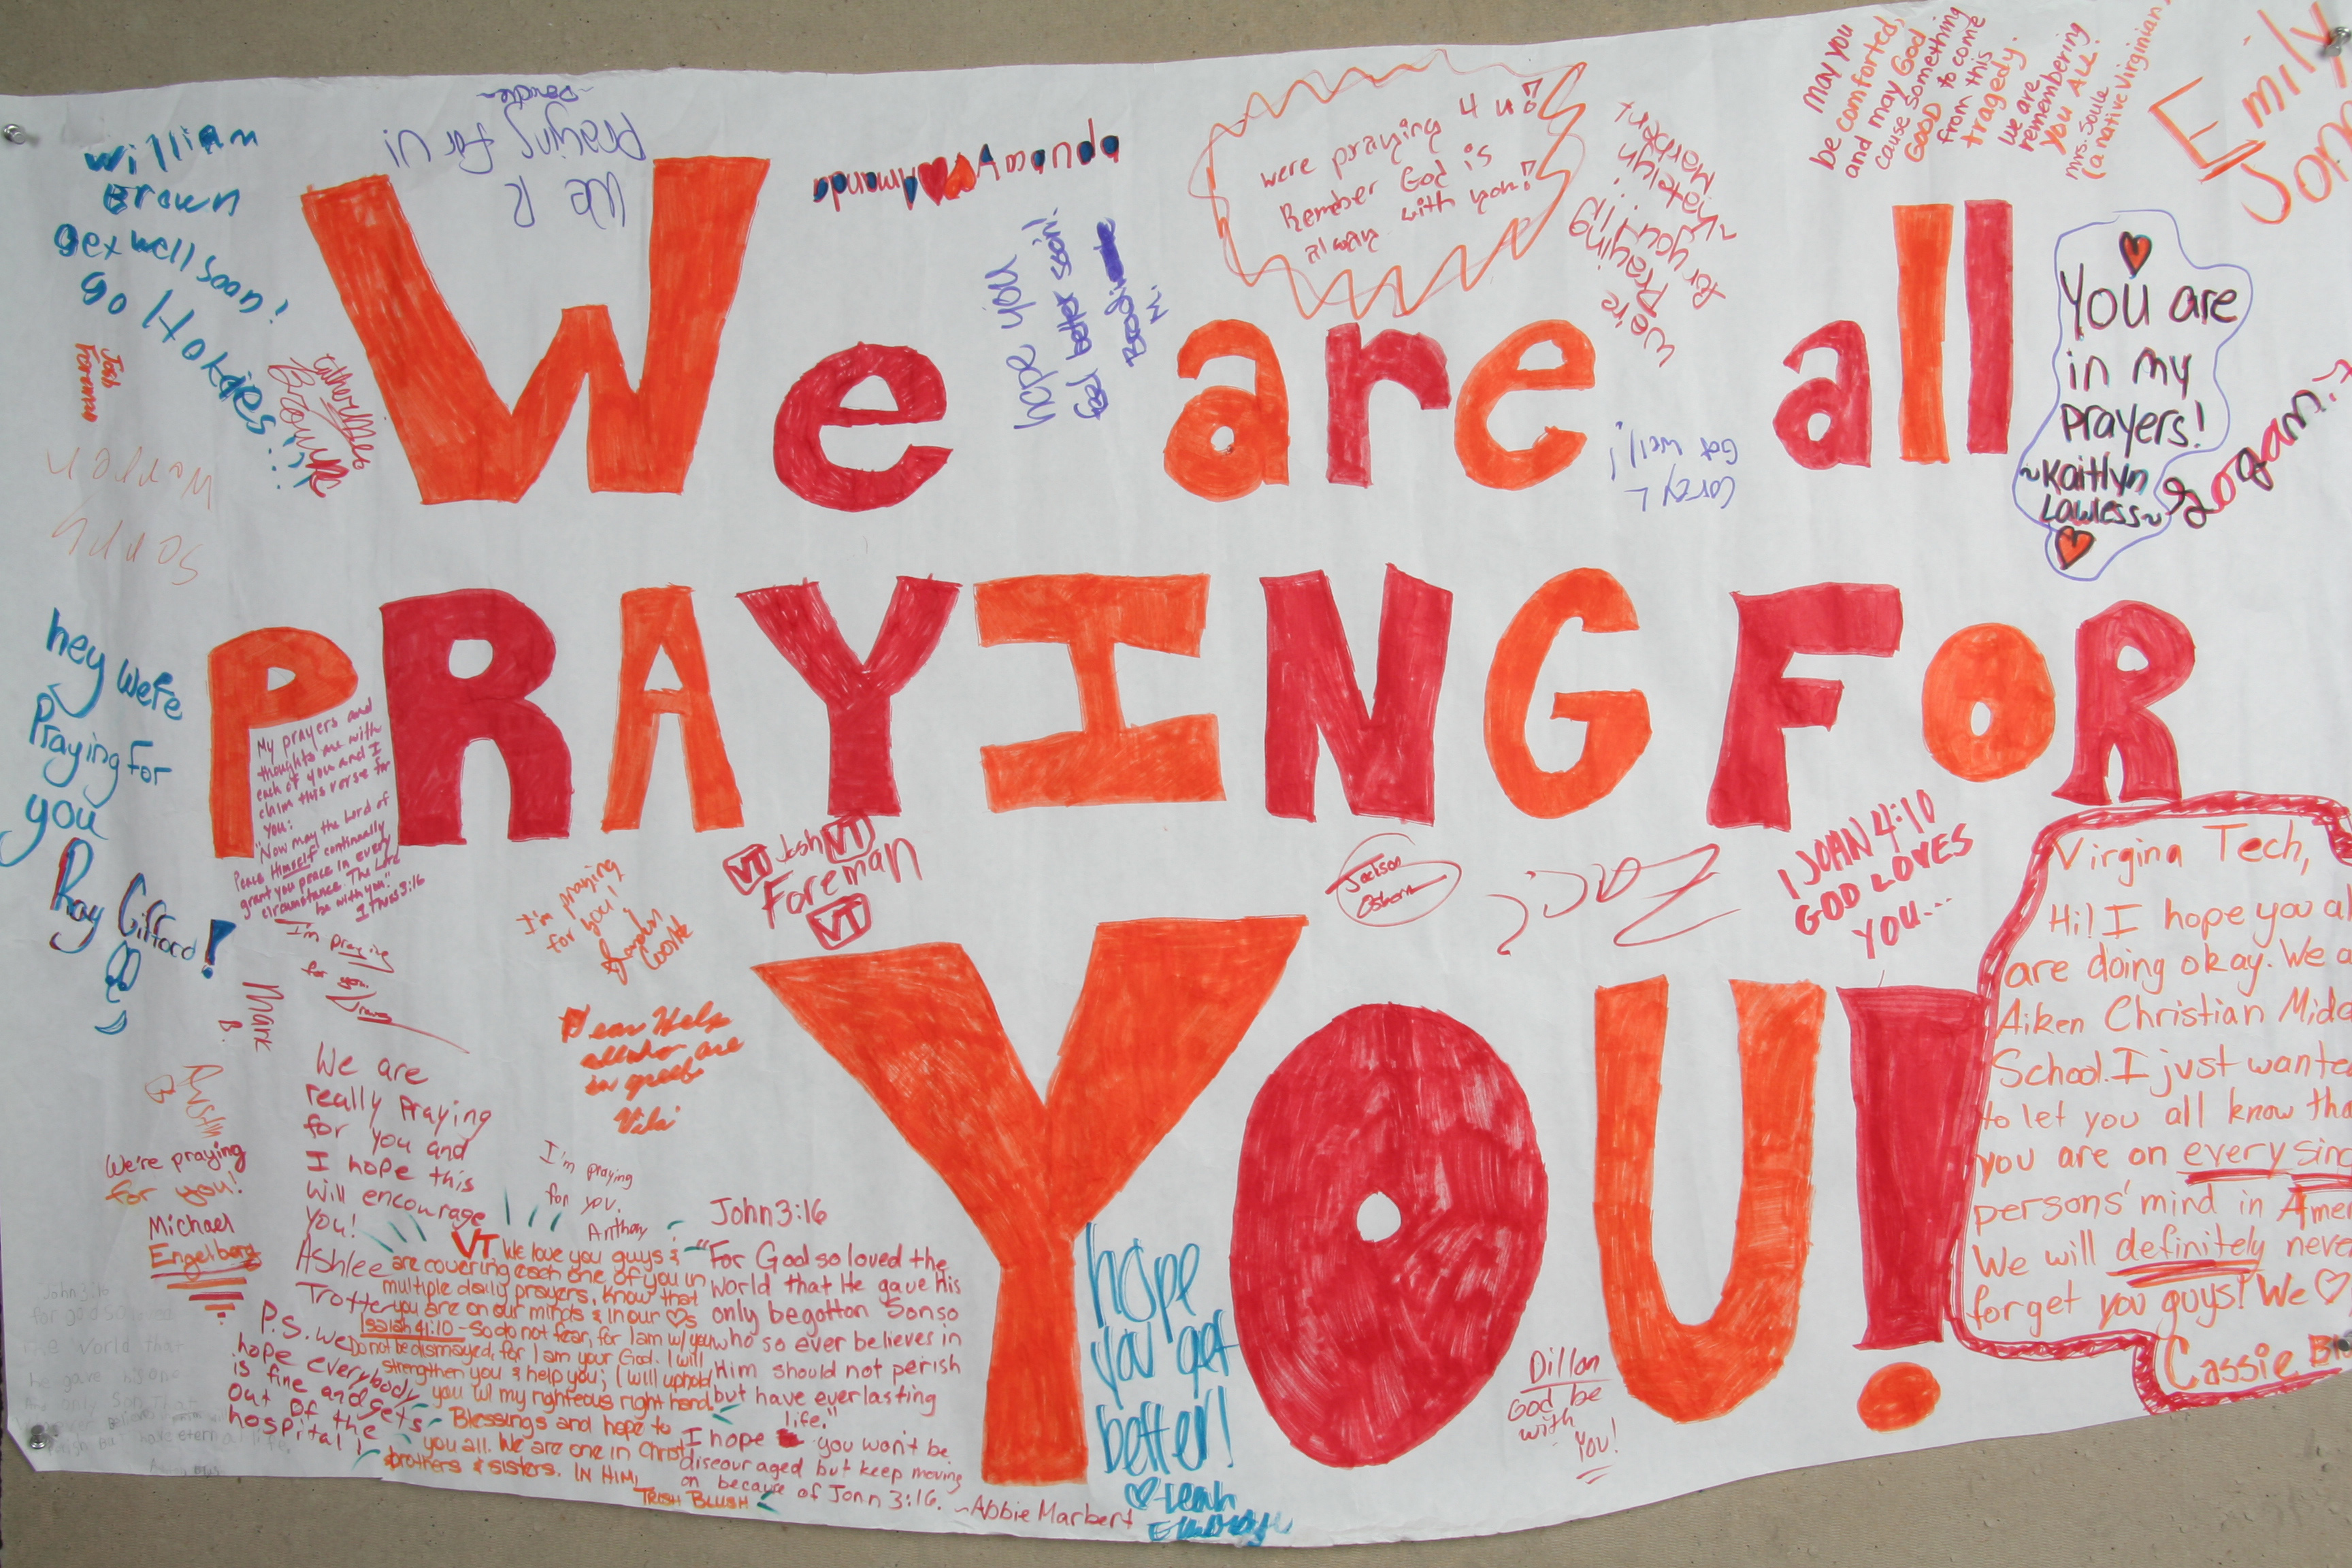 We are all
PRAYING FOR
YOU!
William
Brown
get well soon!
Go Hokies!!!
Josh
Foreman
We R
Praying for U!
Amanda
Amanda
hope you
feel better soon!
were praying 4 u!!
Remember God is
always with you!!
We're
Praying
for you!!!
~Katelyn
Marbert
May you
be comforted,
and may God
cause something
GOOD to come
from this
tragedy.
We are
remembering
You ALL!
Mrs. Soule
(a native Virginian)
Emily
Jon
You are
in my
prayers!
~Kaitlyn
Lawless~
Logan
Corey L
Get well!
Warren
hey We're
Praying For
you
Ray Gifford!
My prayers and
thoughts are with
each of you and I
claim this verse for
you:
"Now may the Lord of
Peace Himself continually
grant you peace in every
circumstance. The Lord
be with you."
II Thess 3:16
I'm praying
for
Mark
B.
I'm praying
for you!
VT Josh VT
Foreman
VT
Jackson
Osborn
1 JOHN 4:10
GOD LOVES
YOU...
Virgina Tech,
Hi! I hope you al
are doing okay. We a
Aiken Christian Midd
School. I just wante
to let you all know tha
you are on every sing
persons' mind in Amer
We will definitely neve
forget you guys! We ♡
Cassie
We're praying
for you!
Michael
Engelberg
We are
really Praying
for you and
I hope this
will encourage
you!
Ashlee
Trotter
P.S. we
hope everybody
is fine and gets
out of the
hospital!
I'm praying
for you.
Anthony
VT. We love you guys &
are covering each one of you in
multiple daily prayers. Know that
you are on our minds & in our ♡s
Isaiah 41:10 - So do not fear, for I am w/ you
Do not be dismayed, for I am your God. I will
strengthen you & help you; I will uphold
you w/ my righteous right hand.
Blessings and hope to
you all. We are one in Christ
brothers & sisters. IN HIM,
TRISH BLUSH
John 3:16
"For God so loved the
world that He gave His
only begotton Son so
who so ever believes in
Him should not perish
but have everlasting
life."
I hope you won't be
discouraged but keep moving
on because of John 3:16.
~Abbie Marbert
hope
you get
better!
♡ Leah
Dillon
God be
with
You!
John 3:16